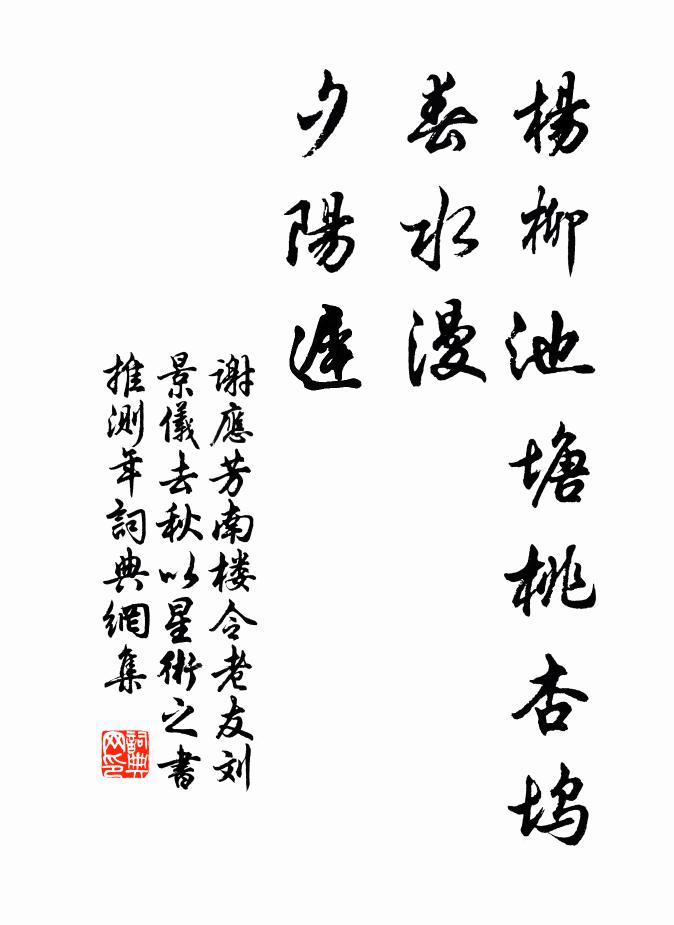 楊柳池塘桃杏塢
春水漫
夕陽遲
谢應芳南楼令老友刘
景儀去秋以星術之書
推測年詞典網集
詞典
网印